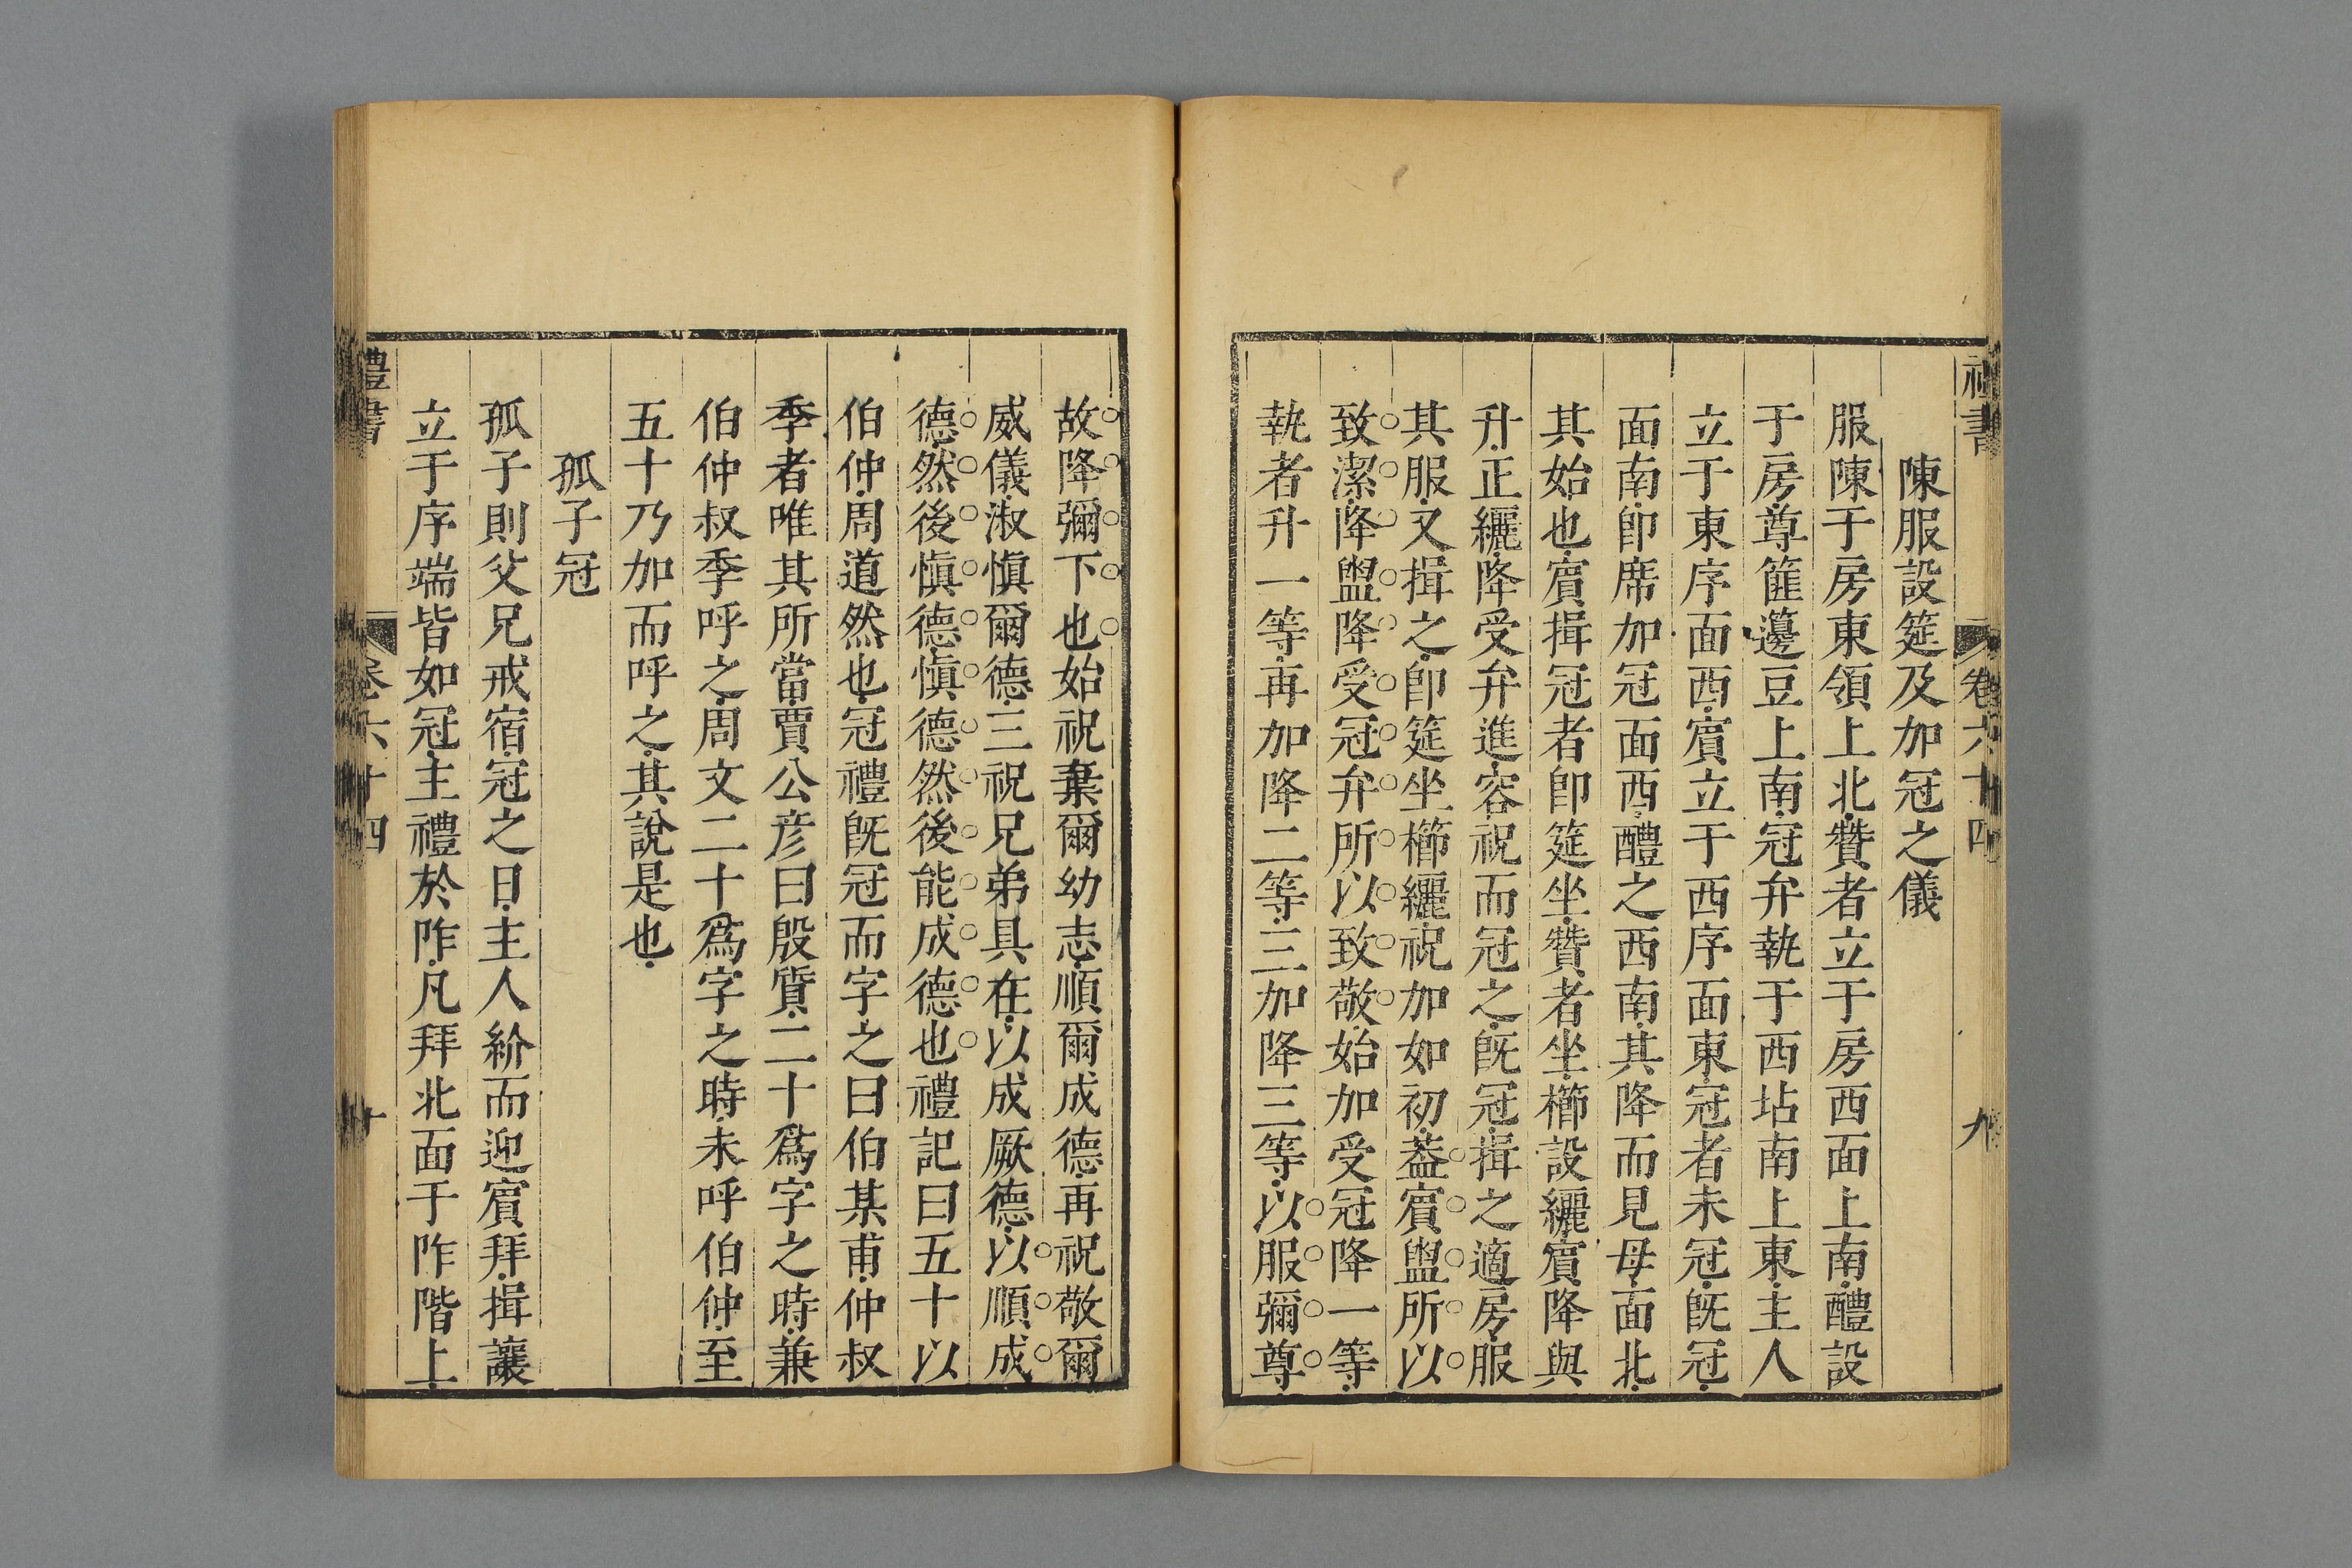 禮書 卷六十四 九
陳服設筵及加冠之儀
服陳于房東領上北贊者立于房西面上南醴設
于房尊篚籩豆上南冠弁執于西坫南上東主人
立于東序面西賔立于西序面東冠者未冠旣冠
面南卽席加冠面西醴之西南其降而見母面北
其始也賔揖冠者卽筵坐贊者坐櫛設纚賔降與
升正纚降受弁進容祝而冠之旣冠揖之適房服
其服又揖之卽筵坐櫛纚祝加如初葢賔盥所以
致潔降盥降受冠弁所以致敬始加受冠降一等
執者升一等再加降二等三加降三等以服彌尊
故降彌下也始祝棄爾幼志順爾成德再祝敬爾
威儀淑愼爾德三祝兄弟具在以成厥德以順成
德然後愼德愼德然後能成德也禮記曰五十以
伯仲周道然也冠禮旣冠而字之曰伯某甫仲叔
季者唯其所當賈公彦曰殷質二十爲字之時兼
伯仲叔季呼之周文二十爲字之時未呼伯仲至
五十乃加而呼之其說是也
孤子冠
孤子則父兄戒宿冠之日主人紒而迎賔拜揖讓
立于序端皆如冠主禮於阼凡拜北面于阼階上
禮書 卷六十四 十